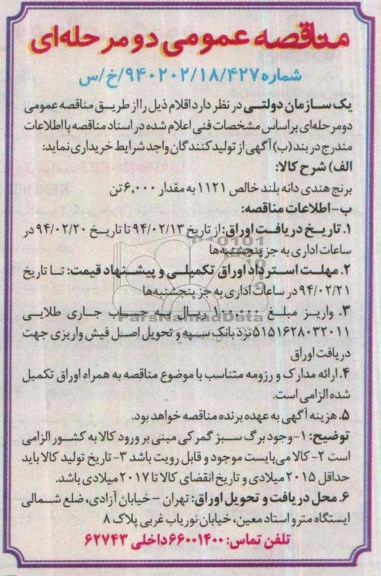 مناقصه عمومی دو مرحله‌ای
شماره ۹۴۰۲۰۲/۱۸/۴۲۷/خ/س
یک سازمان دولتی در نظر دارد اقلام ذیل را از طریق مناقصه عمومی
دو مرحله‌ای بر اساس مشخصات فنی اعلام شده در اسناد مناقصه با اطلاعات
مندرج در بند (ب) آگهی از تولیدکنندگان واجد شرایط خریداری نماید:
الف) شرح کالا:
برنج هندی دانه بلند خالص ۱۱۲۱ به مقدار ۶,۰۰۰ تن
ب- اطلاعات مناقصه:
۱. تاریخ دریافت اوراق: از تاریخ ۹۴/۰۲/۱۳ تا تاریخ ۹۴/۰۲/۲۰ در
ساعات اداری به جز پنجشنبه‌ها
۲. مهلت استرداد اوراق تکمیلی و پیشنهاد قیمت: تا تاریخ
۹۴/۰۲/۲۱ در ساعات اداری به جز پنجشنبه‌ها
۳. واریز مبلغ ریال به حساب جاری طلایی
۵۱۵۱۶۲۸۰۳۲۰۱۱ نزد بانک سپه و تحویل اصل فیش واریزی جهت
دریافت اوراق
۴. ارائه مدارک و رزومه متناسب با موضوع مناقصه به همراه اوراق تکمیل
شده الزامی است.
۵. هزینه آگهی به عهده برنده مناقصه خواهد بود.
توضیح: ۱- وجود برگ سبز گمرکی مبنی بر ورود کالا به کشور الزامی
است ۲- کالا می‌بایست موجود و قابل رویت باشد ۳- تاریخ تولید کالا باید
حداقل ۲۰۱۵ میلادی و تاریخ انقضای کالا تا ۲۰۱۷ میلادی باشد.
۶. محل دریافت و تحویل اوراق: تهران - خیابان آزادی، ضلع شمالی
ایستگاه مترو استاد معین، خیابان نوریاب غربی پلاک ۸
تلفن تماس: ۶۶۰۰۱۴۰۰ داخلی ۶۲۷۴۳